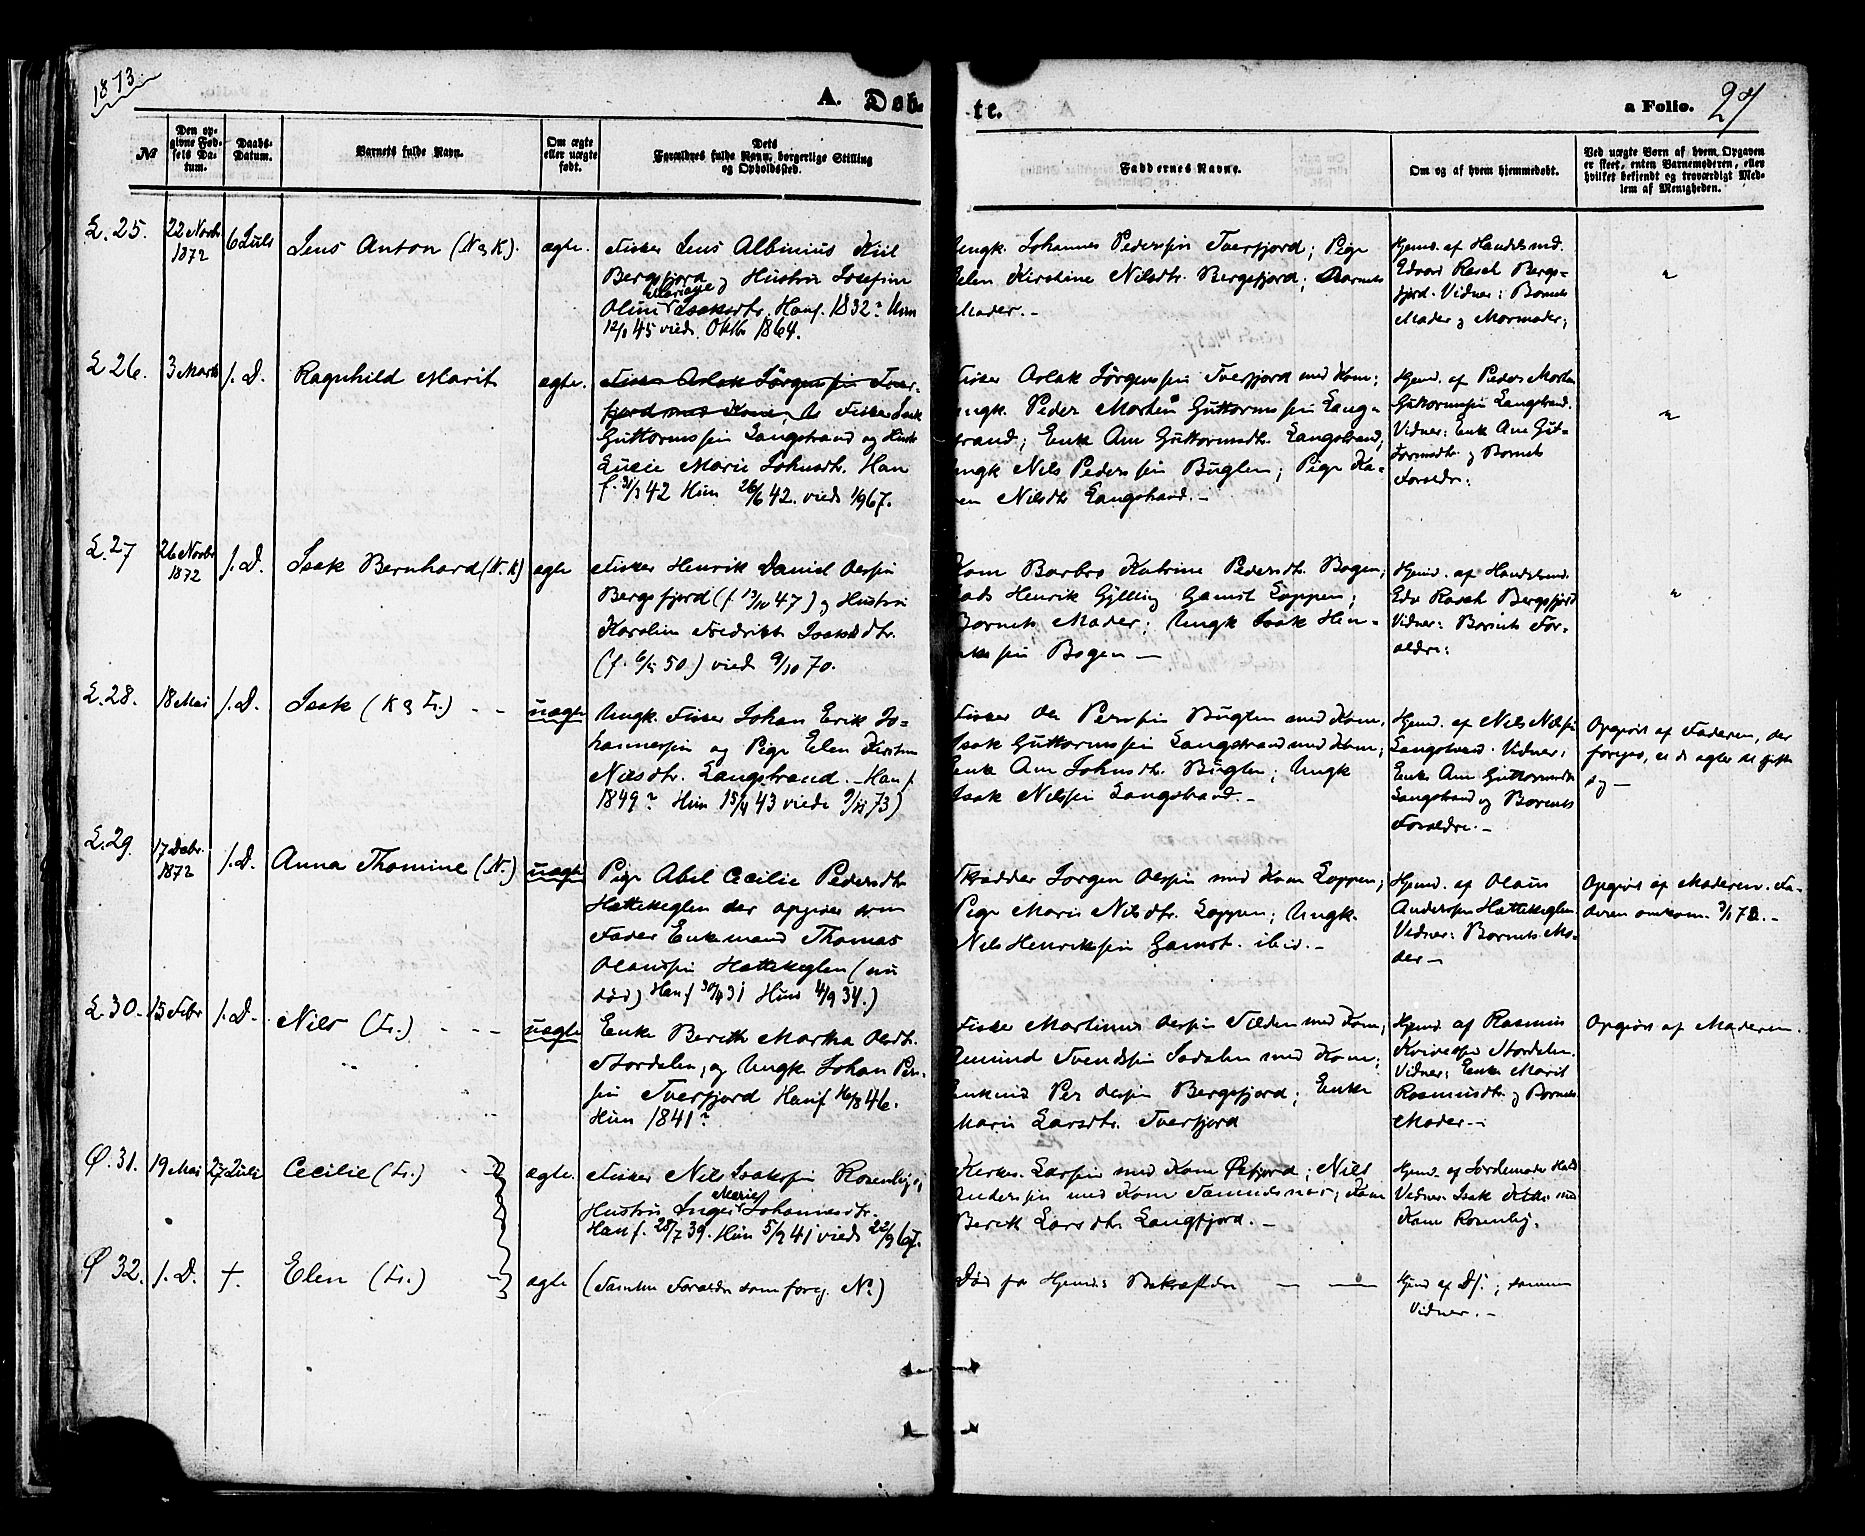 1873.
A. Døb-
te.
a Folio. 27
№
Den op-
givne Fød-
sels Da-
tum.
Daabs-
Datum.
Barnets fulde Navn.
Om ægte
eller uægte
født.
Dets
Forældres fulde Navn, borgerlige Stilling
og Opholdssted.
Faddernes Navne.
Om og af hvem hjemmedøbt.
Ved uægte Børn af hvem Opgaven
er skeet, enten Barnemoderen, eller
hvilket bekjendt og troværdigt Med-
lem af Menigheden.
L. 25.
22 Novbr
1872
6 Juli
Jens Anton (N & K).
ægte.
Fisker Jens Albinius Kiil
Bergsfjord og Hustru Josefine
Mariane
Oline Isaksdtr. Han f. 1832? Hun
12/1 45 viede Oktbr 1864.
Ungk. Johannes Pederssen Tverfjord; Pige
Elen Kirstine Nilsdtr. Bergsfjord; Barnets
Moder. –
Hjemd. af Handelsmd.
Edvard Rasch Bergs-
fjord. Vidner: Barnets
Moder og Mormoder;
"
L 26.
3 Marts
s. D.
Ragnhild Marit
ægte.
Fisker Aslak Jørgenssen Tver-
fjord med Kone, Fisker Isak
Guttormssen Langstrand og Hustr
Lucie Marie Johnsdtr. Han
f. 31/3 42 Hun 26/6 42. viede 1/9 67.
Fisker Aslak Jørgenssen Tverfjord med Kone;
Ungk. Peder Morten Guttormssen Lang-
strand; Enke Ane Guttormsdtr. Langstrand;
Ungk Nils Pederssen Buglen; Pige Ka-
ren Nilsdtr Langstrand. –
Hjemd. af Peder Morten
Guttormssen Langstrand.
Vidner: Enke Ane Gut-
tormsdtr. og Barnets
Forældre.
"
L. 27
26 Novbr
1872
s. D.
Isak Bernhard (N. K)
ægte
Fisker Henrik Daniel Olssen
Bergsfjord (f. 13/10 47) og Hustru
Karoline Fredrikke Isaksdtr.
(f. 6/5 50.) viede 9/10 70.
Kone Barbro Katrine Pedersdtr. Bogen;
Mads Henrik Gylling Gamst Loppen;
Barnets Moder; Ungk Isak Hen-
rikssen Bogen –
Hjemd. af Handelsmd.
Edv Rasch Bergsfjord
Vidner: Barnets For-
ældre.
"
L. 28.
18 Mai
s. D.
Isak (K & Fr.) - -
uægte
Ungk. Fisker Johan Erik Jo-
hannessen og Pige Elen Kirstine
Nilsdtr. Langstrand. – Han f.
1849? Hun 15/4 43 viede 9/11 73)
Fisker Ole Perssen Buglen med Kone;
Isak Guttormssen Langstrand med Kone;
Enke Ane Johnsdtr. Buglen; Ungk
Isak Nilssen Langstrand. –
Hjemd. af Nils Nilssen
Langstrand. Vidner:
Enke Ane Guttormsdtr
Langstrand og Barnets
Forældre. –
Opgivet af Faderen, der
foregav, at de agter at gifte
sig –
L. 29.
17 Decbr.
1872
s. D.
Anna Thomine (N.)
uægte
Pige Abel Cecilie Pedersdtr
Hættekeglen der opgives som
Fader Enkemand Thomas
Olaussen Hættekeglen (nu
død) Han f 30/4 31 Hun 4/9 34.)
Skrædder Jørgen Olssen med Kone Loppen;
Pige Maris Nilsdtr. Loppen; Ungk.
Nils Henrikssen Gamst. ibid. –
Hjemd. af Olaus
Anderssen Hættekeglen
Vidner: Barnets Mo-
der –
Opgivet af Moderen. Fa-
deren omkom. 3/1 72. –
L 30.
15 Febr
s. D.
Nils (Fr.) - - -
uægte
Enke Bereth Martha Olsdtr.
Stordalen, og Ungk Johan Per-
sen Tverfjord Han f 16/8 46.
Hun 1841?
Fisker Martinus Olssen Nilden med Kone;
Amund Svendssen Sadalen med Kone;
Enkemd Per Olssen Bergsfjord; Enke
Maris Larsdtr. Tverfjord
Hjemd. af Rasmus
Stordalen.
Vidner: Enke Marit
Rasmusdtr. og Barnets
Moder –
Opgivet af Moderen.
Ø. 31.
19 Mai
27 Juli
Cecilie (Fr.)
ægte.
Fisker Nils Isakssen Rosenhig og
Marie
Hustru Inger Johannesdtr.
Han f. 28/7 39. Hun 5/9 41 viede 22/9 67.
Kirkes. Larssen med Kone Øxfjord; Nils
Anderssen med Kone Tamundsnes; Kone
Bereth Larsdtr. Langfjord. –
Hjemd. af Jordemoder
Vidner Isak med
Kone Rosenhig.
Ø 32.
s. D.
†.
Elen (Fr.)
ægte
(Samme Forældre som forrige Nr)
Død før Hjemd.s Bekræftelse — —
Hjemd af Ds.; samme
Vidner. –